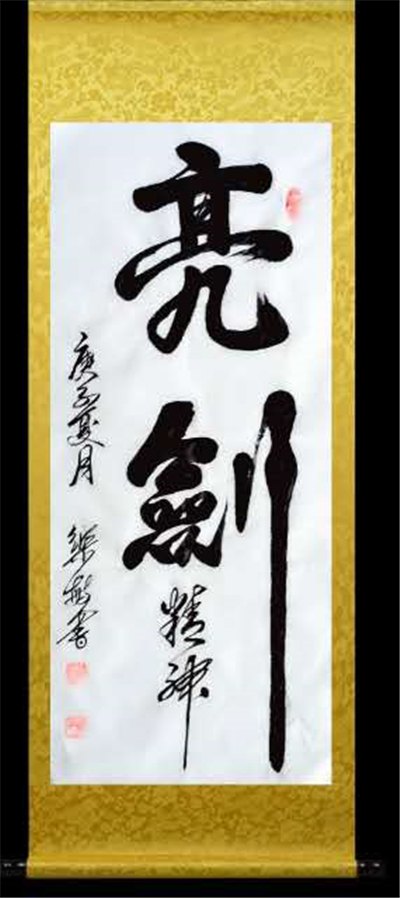 亮劍
精神
庚子夏月
樂樹書